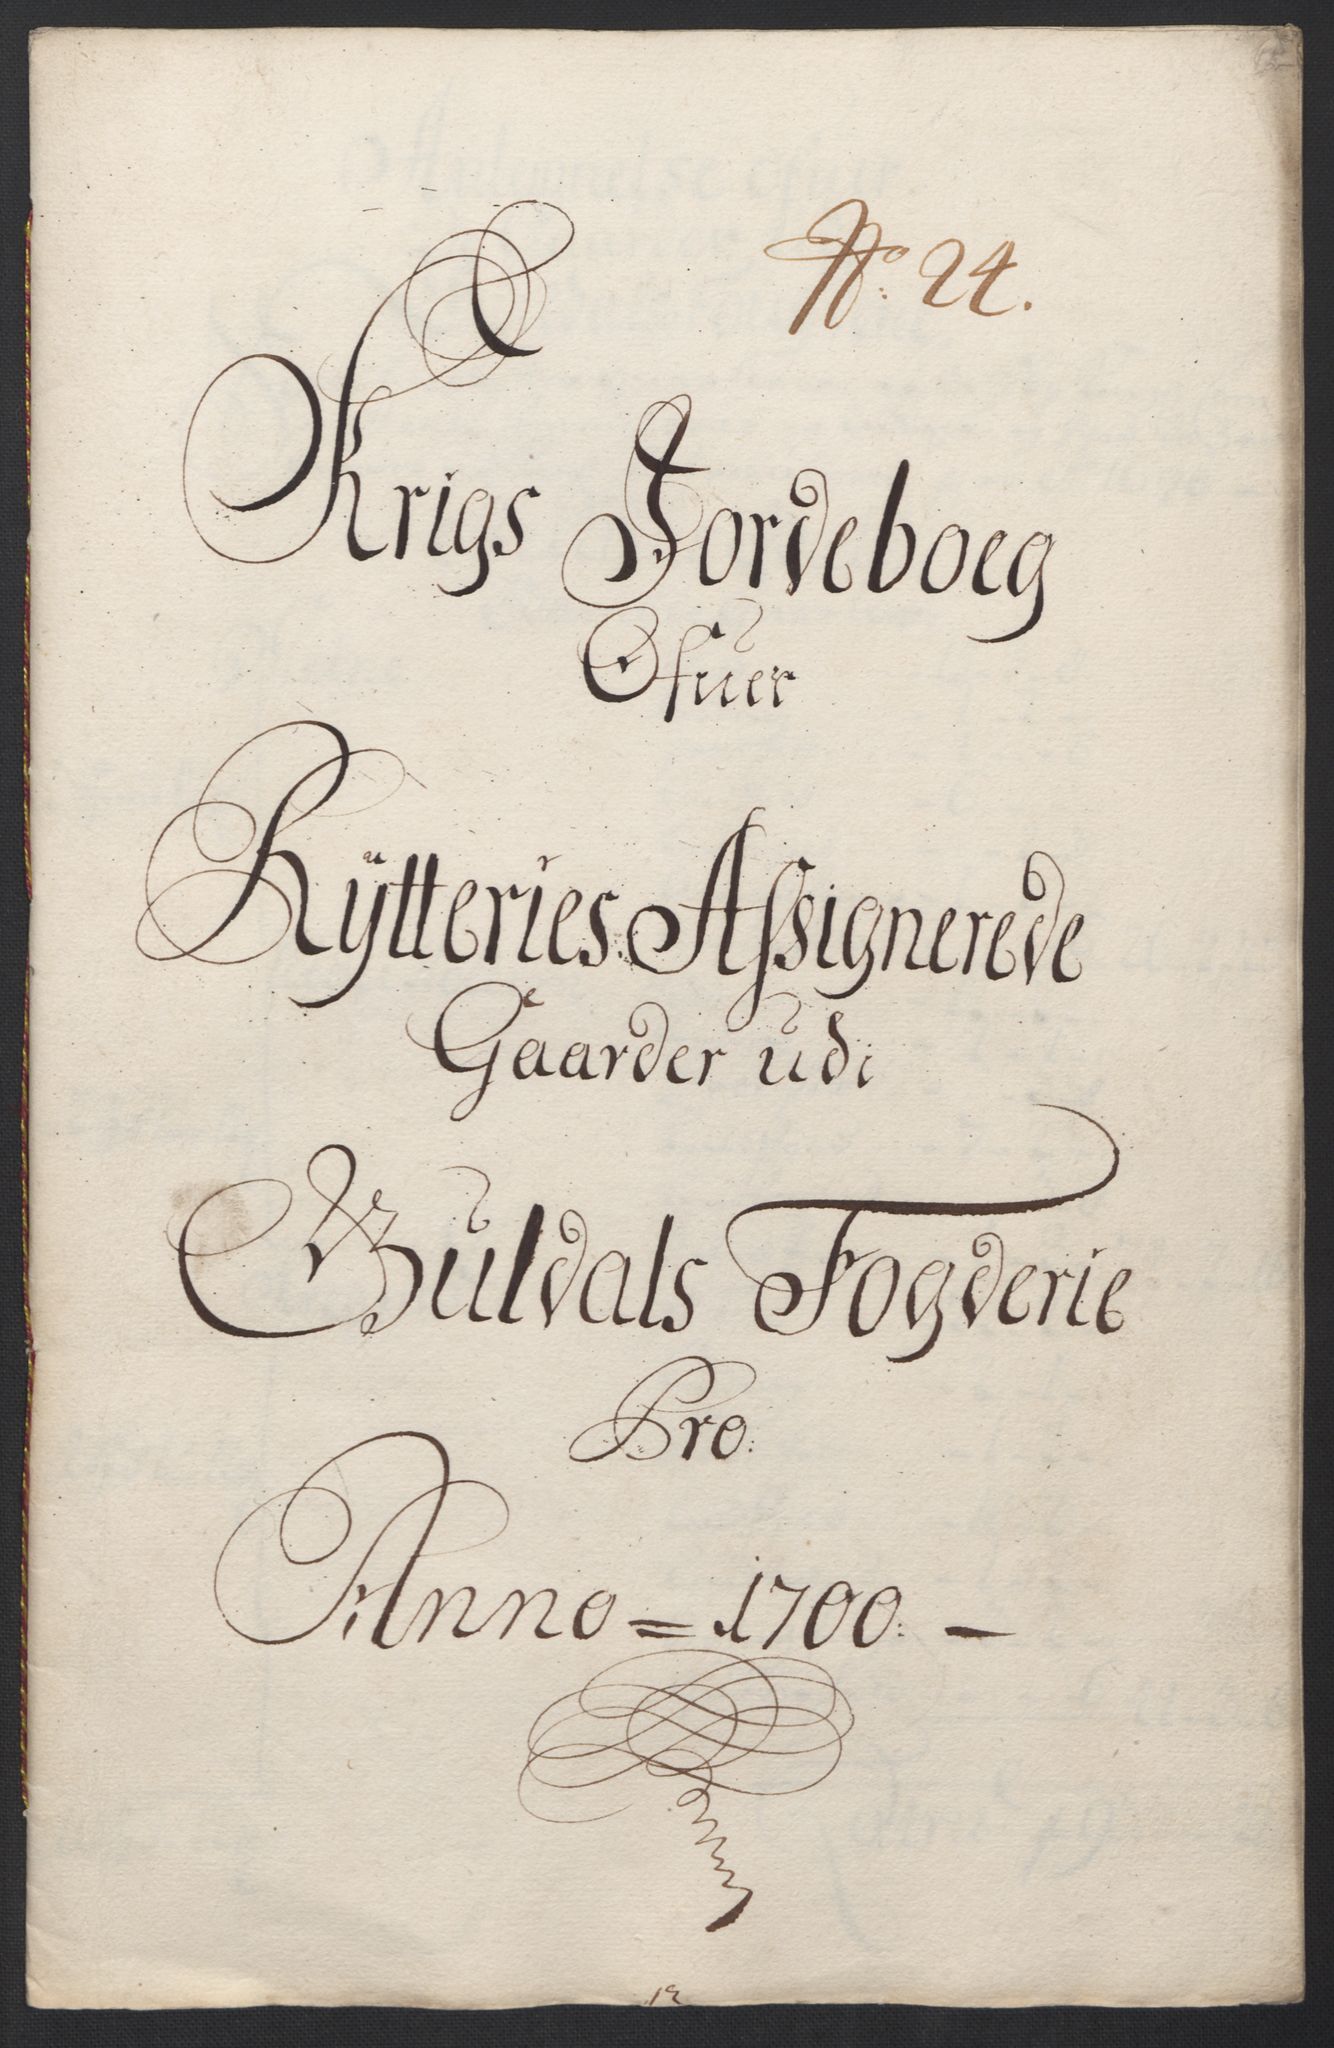 No. 24.
Krigs Jordeboeg
Ofuer
Rÿtteries Assignerede
Gaarder udi
Guldals Fogderie
Pro.
Anno = 1700. -
12